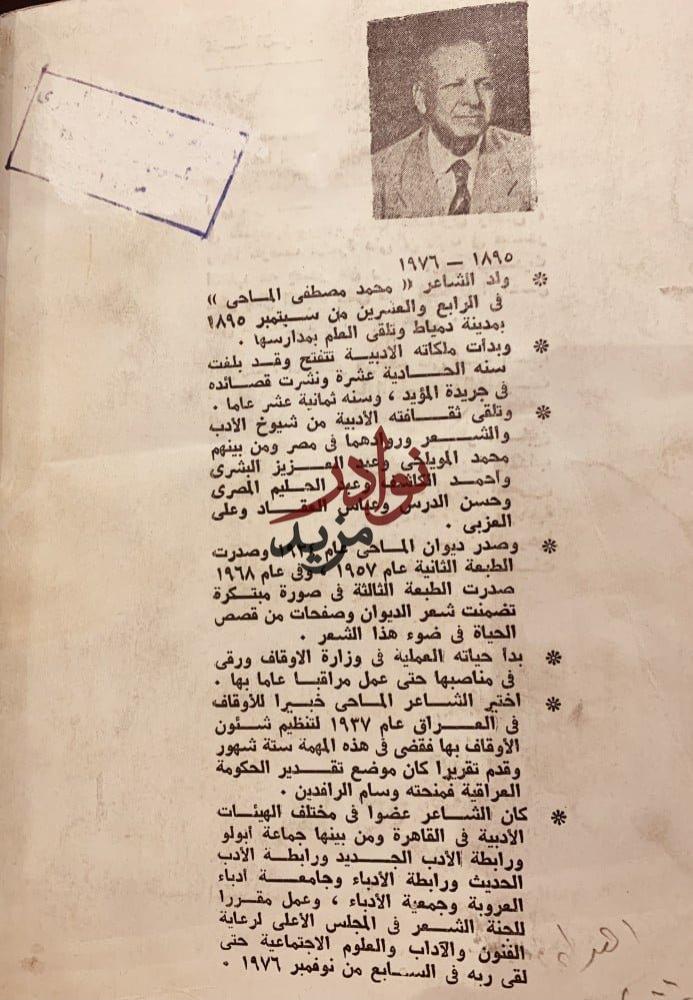 ١٨٩٥ — ١٩٧٦
* ولد الشاعر « محمد مصطفى المـاحى »
فى الرابع والعشرين من سـبتمبر ١٨٩٥
بمدينة دمياط وتلقى العلم بمدارسها .
* وبدأت ملكاته الأدبيـة تتفتح وقـد بلغت
سنه الحـادية عشرة ونشرت قصـائده
فى جريدة المؤيد ، وسنه ثمانية عشر عاما .
* وتلقى ثقـافته الأدبية من شيوخ الأدب
والشـعر وروادهما فى مصر ومن بينهم
محمد المويلحى وعبد العـزيز البشرى
وأحمـد الكاشف وعبد الحليم المصرى
وحسن الدرس وعباس العقـاد وعلى
العزبى .
* وصدر ديوان المـاحى عام وصدرت
الطبعة الثانية عام ١٩٥٧ وفى عام ١٩٦٨
صدرت الطبعة الثالثة فى صورة مبتـكرة
تضمنت شعر الديوان وصفحات من قصص
الحياة فى ضوء هذا الشعر .
* بدأ حياته العملية فى وزارة الاوقاف ورقى
فى مناصبها حتى عمل مراقبـا عاما بها .
* اختير الشـاعر المـاحى خبيرا للأوقاف
فى العـراق عام ١٩٣٧ لتنظيم شـئون
الأوقاف بها فقضى فى هذه المهمة ستة شهور
وقدم تقريرا كان موضع تقـدير الحكومة
العراقية فمنحته وسام الرافدين .
* كان الشـاعر عضوا فى مختلف الهيئـات
الأدبية فى القاهرة ومن بينها جماعة أبولو
ورابطة الأدب الجـديد ورابطـة الأدب
الحديث ورابطة الأدباء وجامعـة أدباء
العروبة وجمعية الأدباء ، وعمل مقـررا
للجنة الشـعر فى المجلس الأعلى لرعاية
الفنون والآداب والعلوم الاجتماعية حتى
لقى ربه فى السـابع من نوفمبر ١٩٧٦ .
نوادر
مزيد